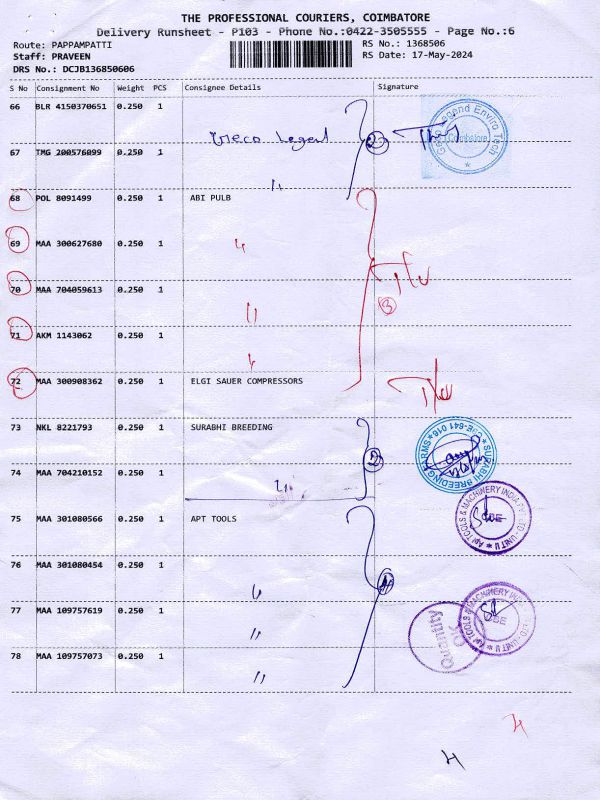 THE PROFESSIONAL COURIERS, COIMBATORE
Delivery Runsheet - P103 - Phone No.:0422-3505555 - Page No.:6
Route: PAPPAMPATTI RS No.: 1368506
Staff: PRAVEEN RS Date: 17-May-2024
DRS No.: DCJB136850606
S No Consignment No Weight PCS Consignee Details Signature
66 BLR 4150370651 0.250 1
67 TMG 200576099 0.250 1
"
68 POL 8091499 0.250 1 ABI PULB
69 MAA 300627680 0.250 1 "
70 MAA 704059613 0.250 1 "
3
71 AKM 1143062 0.250 1 "
72 MAA 300908362 0.250 1 ELGI SAUER COMPRESSORS
73 NKL 8221793 0.250 1 SURABHI BREEDING
SURABHI BREEDING FARMS
2
74 MAA 704210152 0.250 1 "
75 MAA 301080566 0.250 1 APT TOOLS
76 MAA 301080454 0.250 1 "
4
77 MAA 109757619 0.250 1 "
Quantity
78 MAA 109757073 0.250 1 "